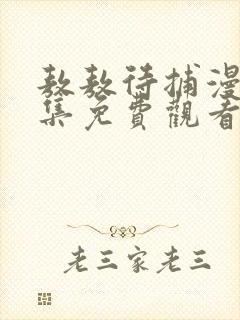 敖敖待捕漫
集免費觀看
老三家老三